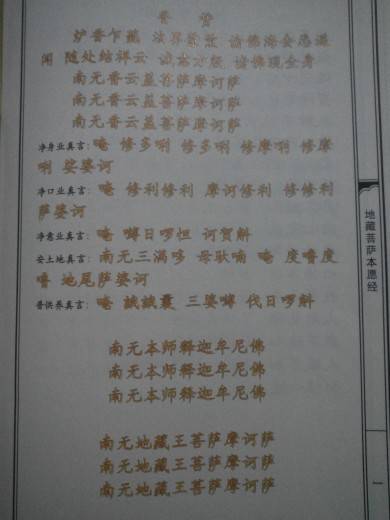 香赞
炉香乍爇 法界蒙熏 诸佛海会悉遥
闻 随处结祥云 诚意方殷 诸佛现全身
南无香云盖菩萨摩诃萨
南无香云盖菩萨摩诃萨
南无香云盖菩萨摩诃萨
净身业真言：唵 修多唎 修多唎 修摩唎 修摩
唎 娑婆诃
净口业真言：唵 修利修利 摩诃修利 修修利
萨婆诃
净意业真言：唵 嚩日啰怛 诃贺斛
安土地真言：南无三满哆 母驮喃 唵 度噜度
噜 地尾萨婆诃
普供养真言：唵 誐誐曩 三婆嚩 伐日啰斛
南无本师释迦牟尼佛
南无本师释迦牟尼佛
南无本师释迦牟尼佛
南无地藏王菩萨摩诃萨
南无地藏王菩萨摩诃萨
南无地藏王菩萨摩诃萨
地藏菩萨本愿经
一